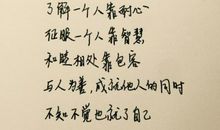 了解一个人靠耐心
征服一个人靠智慧
和睦相处靠包容
与人为善，成就他人的同时
不知不觉也就了自己